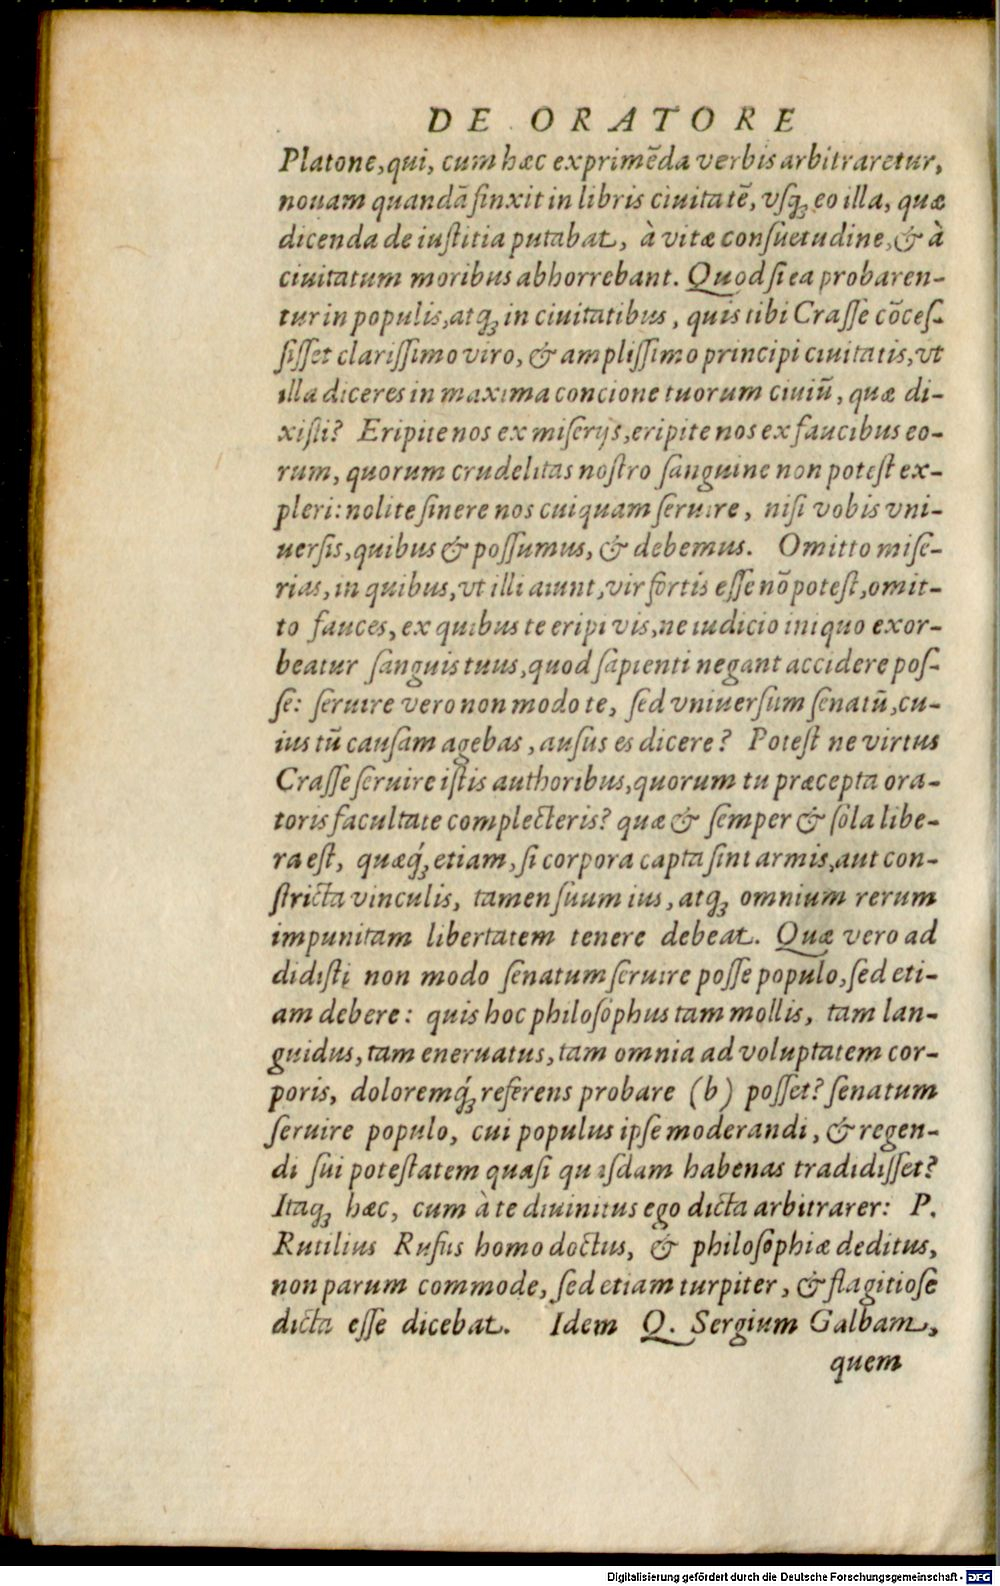 DE ORATORE
Platone, qui, cum hæc exprimēda verbis arbitraretur,
nouam quandā finxit in libris ciuitatē, vſq; eo illa, quæ
dicenda de iuſtitia putabat, à vitæ conſuetudine, & à
ciuitatum moribus abhorrebant. Quod ſi ea probaren-
tur in populis, atq; in ciuitatibus, quis tibi Craſſe cōceſ-
ſiſſet clariſſimo viro, & ampliſſimo principi ciuitatis, vt
illa diceres in maxima concione tuorum ciuiū, quæ di-
xiſti? Eripite nos ex miſerijs, eripite nos ex faucibus eo-
rum, quorum crudelitas noſtro ſanguine non poteſt ex-
pleri: nolite ſinere nos cuiquam ſeruire, niſi vobis vni-
uerſis, quibus & poſſumus, & debemus. Omitto miſe-
rias, in quibus, vt illi aiunt, vir fortis eſſe nō poteſt, omit-
to fauces, ex quibus te eripi vis, ne iudicio iniquo exor-
beatur ſanguis tuus, quod ſapienti negant accidere poſ-
ſe: ſeruire vero non modo te, ſed vniuerſum ſenatū, cu-
ius tū cauſam agebas, auſus es dicere? Poteſt ne virtus
Craſſe ſeruire iſtis authoribus, quorum tu præcepta ora-
toris facultate complecteris? quæ & ſemper & ſola libe-
ra eſt, quæq́; etiam, ſi corpora capta ſint armis, aut con-
ſtricta vinculis, tamen ſuum ius, atq; omnium rerum
impunitam libertatem tenere debeat. Quæ vero ad
didiſti non modo ſenatum ſeruire poſſe populo, ſed eti-
am debere: quis hoc philoſophus tam mollis, tam lan-
guidus, tam eneruatus, tam omnia ad voluptatem cor-
poris, doloremq́; referens probare (b) poſſet? ſenatum
ſeruire populo, cui populus ipſe moderandi, & regen-
di ſui poteſtatem quaſi quiſdam habenas tradidiſſet?
Itaq; hæc, cum à te diuinitus ego dicta arbitrarer: P.
Rutilius Rufus homo doctus, & philoſophiæ deditus,
non parum commode, ſed etiam turpiter, & flagitioſe
dicta eſſe dicebat. Idem Q. Sergium Galbam,
quem
Digitalisierung gefördert durch die Deutsche Forschungsgemeinschaft - DFG